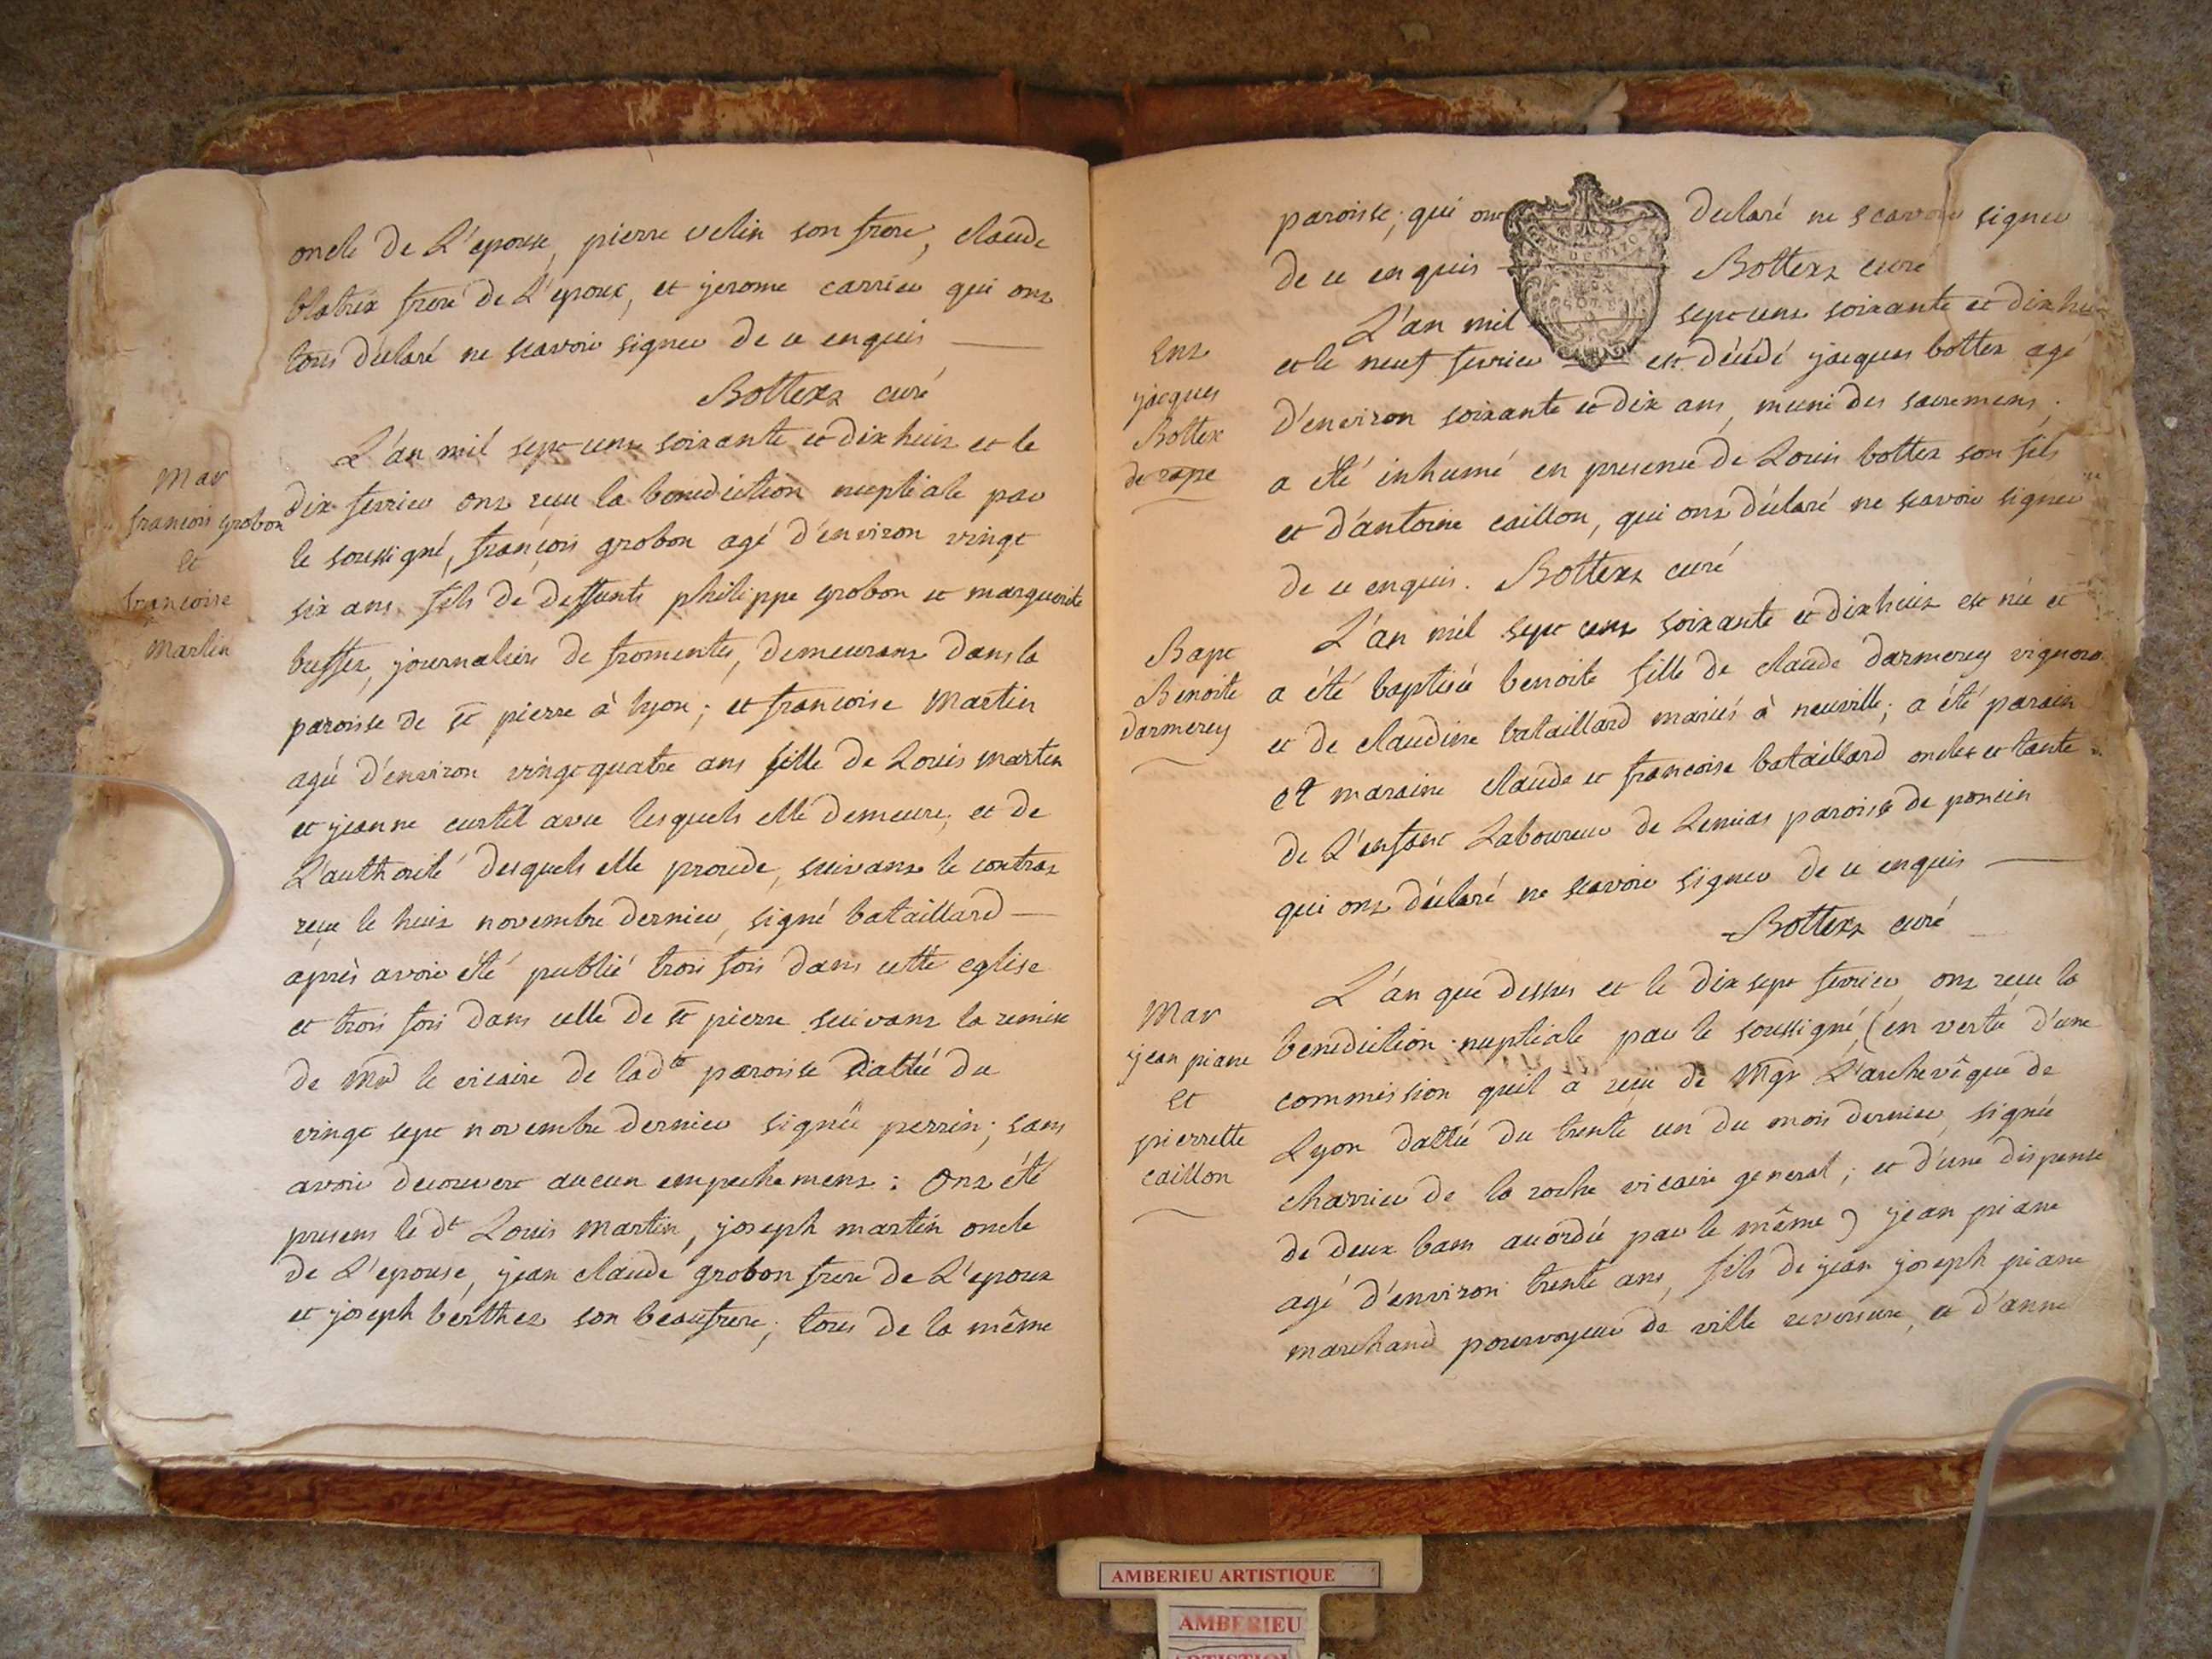 oncle de L'epouse, pierre velin son frere, claude
blatrix frere de L'epoux, et jerome carrier qui ont
tous déclaré ne scavoir signer de ce enquis
Bottex curé
Mar
francois grobon
et
francoise
Martin
L'an mil sept cent soixante et dix huit et le
dix fevrier ont reçu la benediction nuptiale par
le soussigné, françois grobon agé d'environ vingt
six ans fils de deffunts philippe grobon et marguerite
buffet, journaliers de fromentes, demeurant dans la
paroisse de st pierre à lyon; et francoise Martin
agée d'environ vingt quatre ans fille de Louis martin
et jeanne curtel avec lesquels elle demeure, et de
L'authorité desquels elle procede, suivant le contrat
reçu le huit novembre dernier, signé bataillard
après avoir été publié trois fois dans cette eglise
et trois fois dans celle de st pierre suivant la remise
de Mr le vicaire de lad te paroisse dattée du
vingt sept novembre dernier signée perrin; sans
avoir decouvert aucun empechement: Ont été
presens le dt Louis Martin, joseph martin oncle
de L'epouse, jean claude grobon frere de L'epoux
et joseph berthet son beaufrere; tous de la même
paroisse; qui ont declaré ne scavoir signer
de ce enquis Bottex curé
Ent
jacques
Bottex
de rape
L'an mil sept cent soixante et dix huit
et le neuf fevrier est décédé jacques bottex agé
d'environ soixante et dix ans, muni des sacremens;
a été inhumé en presence de Louis bottex son fils
et d'antoine caillon, qui ont déclaré ne scavoir signer
de ce enquis. Bottex curé
Bapt
Benoite
darmerey
L'an mil sept cent soixante et dix huit est née et
a été baptisée benoite fille de claude darmerey vigneron
et de claudine bataillard mariés à neuville; a été parain
et maraine claude et francoise bataillard oncle et tante
de L'enfant Laboureur de Lemias paroisse de poncin
qui ont déclaré ne scavoir signer de ce enquis
Bottex curé
Mar
jean piane
et
pierrette
caillon
L'an que dessus et le dix sept fevrier ont reçu la
benediction nuptiale par le soussigné, (en vertu d'une
commission quil a reçu de Mgr L'archevêque de
Lyon dattée du trente un du mois dernier, signée
charrier de la roche vicaire general; et d'une dispense
de deux bans accordée par le même) jean piane
agé d'environ trente ans, fils de jean joseph piane
marchand pourvoyeur de ville reversure, et d'anne
AMBERIEU ARTISTIQUE
AMBERIEU
ARTISTIQUE